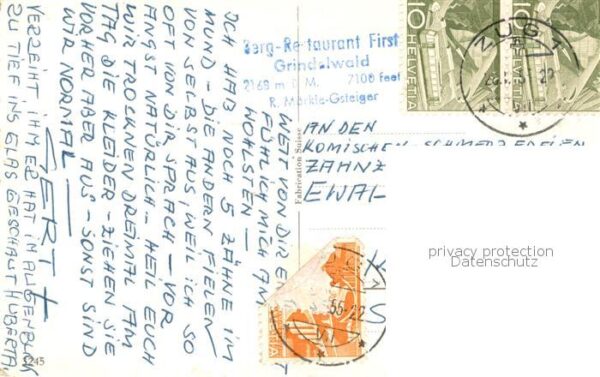 WEIT VON DIR E
FÜHL ICH MICH AM
WOHLSTEN –
ICH HAB NOCH 5 ZÄHNE IM
MUND – DIE ANDERN FIELEN
VON SELBST AUS, WEIL ICH SO
OFT VON DIR SPRACH – VOR
ANGST NATÜRLICH – HEIL EUCH
WIR TROCKNEN DREIMAL AM
TAG DIE KLEIDER – ZIEHEN SIE
VORHER ABER AUS – SONST SIND
WIR NORMAL
GERT +
VERZEIHT IHM ER HAT IM AUGENBLICK
ZU TIEF INS GLAS GESCHAUT HUBERTA
Berg-Restaurant First
Grindelwald
2168 m ü. M. 7100 feet
R. Märkle-Gsteiger
Fabrication Suisse
AN DEN
KOMISCHEN - SCHMERZFREIEN
ZAHNZ
EWAL
10
HELVETIA
10
HELVETIA
ZUG 1
HELVETIA
55-22
privacy protection
Datenschutz
3245